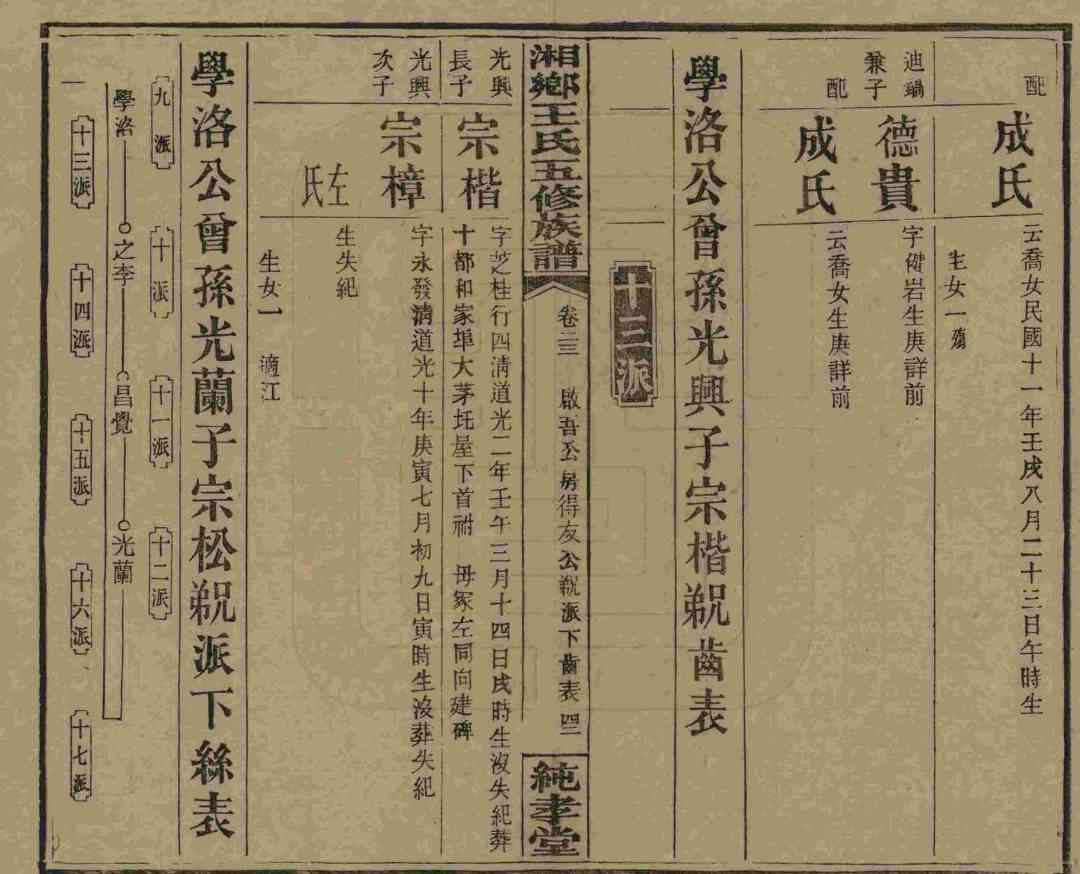 配
成氏
云喬女民國十一年壬戌八月二十三日午時生
生女一殤
迪瑞
兼子
德貴
字健岩生庚詳前
配
成氏
云喬女生庚詳前
學洛公曾孫光興子宗楷
齒表
十三派
湘鄉王氏五修族譜
卷三三
啟吾公房得友公
派下齒表
純孝堂
光興
長子
宗楷
字芝桂行四清道光二年壬午三月十四日戌時生沒失紀葬
十都和家埠大茅坵屋下首祔 毋冢左同向建碑
光興
次子
宗樟
字永發清道光十年庚寅七月初九日寅時生沒葬失紀
左氏
生失紀
生女一 適江
學洛公曾孫光蘭子宗松
派下絲表
九派
十派
十一派
十二派
學洛
之李
昌覺
光蘭
十三派
十四派
十五派
十六派
十七派